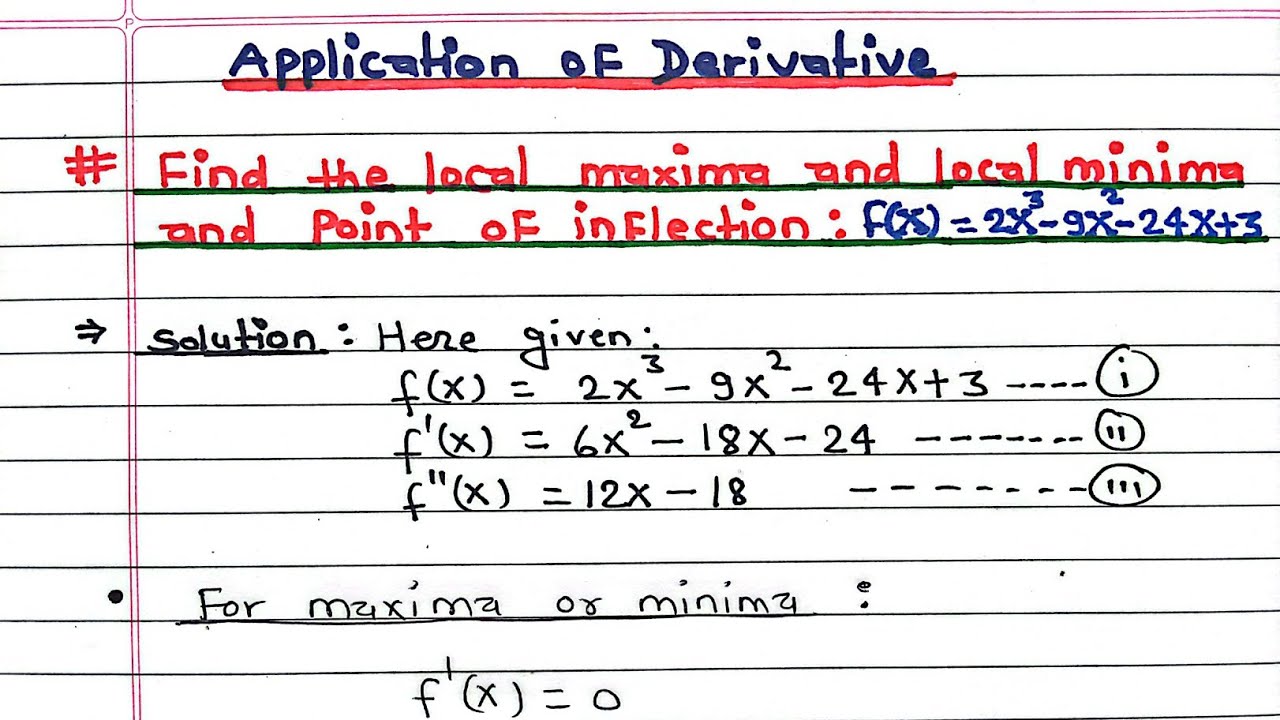 Application of Derivative
# Find the local maxima and local minima
and Point of inflection : f(x) = 2x³-9x²-24x+3
⇒ Solution : Here given :
f(x) = 2x³ - 9x² - 24x + 3 ---- (i)
f'(x) = 6x² - 18x - 24 ------- (ii)
f''(x) = 12x - 18 ------- (iii)
• For maxima or minima :
f'(x) = 0